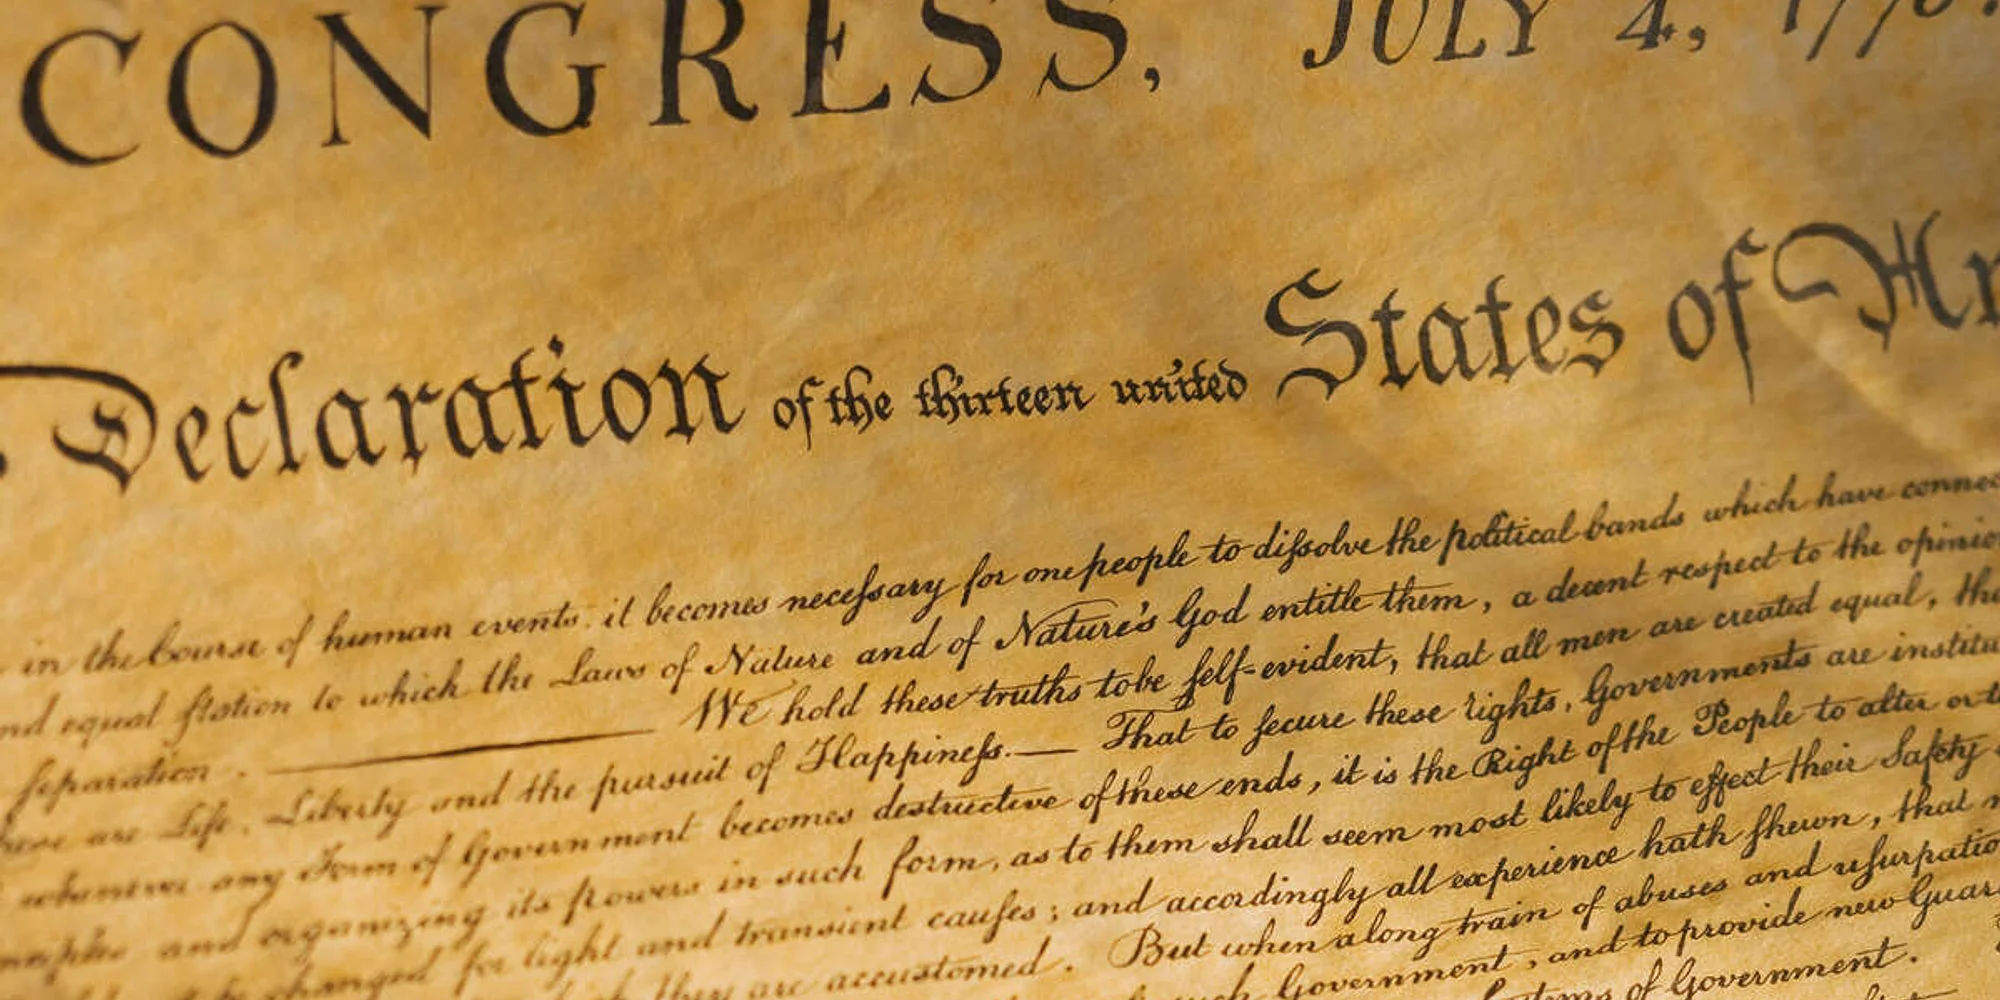 CONGRESS, JULY 4, 1776.
Declaration of the thirteen united States of Am
in the Course of human events, it becomes neceſsary for one people to diſsolve the political bands which have connec
nd equal ſtation to which the Laws of Nature and of Nature's God entitle them, a decent respect to the opinion
ſeparation. ——— We hold these truths to be ſelf-evident, that all men are created equal, tha
these are Life, Liberty and the pursuit of Happineſs. — That to ſecure these rights, Governments are institu
whenever any Form of Government becomes destructive of these ends, it is the Right of the People to alter or to
nciples and organizing its powers in such form, as to them shall seem most likely to effect their Safety
changed for light and transient cauſes; and accordingly all experience hath ſhewn, that
they are accustomed. But when a long train of abuses and uſurpatio
such Government, and to provide new Guar
of Government.